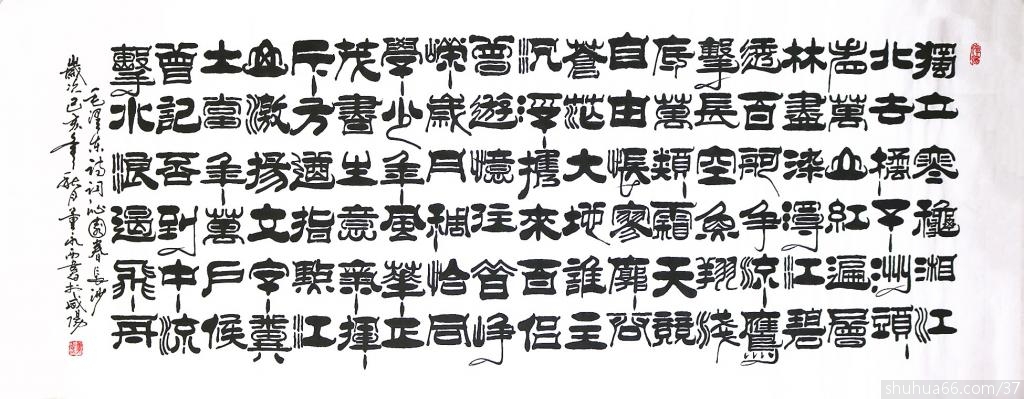 獨立寒穐湘江
北去橘子洲頭
看萬山紅遍層
林盡染漫江碧
透百舸爭流鷹
擊長空魚翔淺
底萬類霜天競
自由悵寥廓問
蒼茫大地誰主
沉浮攜來百侶
曾遊憶往昔崢
嶸歲月稠恰同
學少年風華正
茂書生意氣揮
斥方遒指點江
山激揚文字糞
土當年萬戶侯
曾記否到中流
擊水浪遏飛舟
毛澤東詩詞沁園春長沙
歲次己亥年秋月董永西書於咸陽
shuhua66.com/37